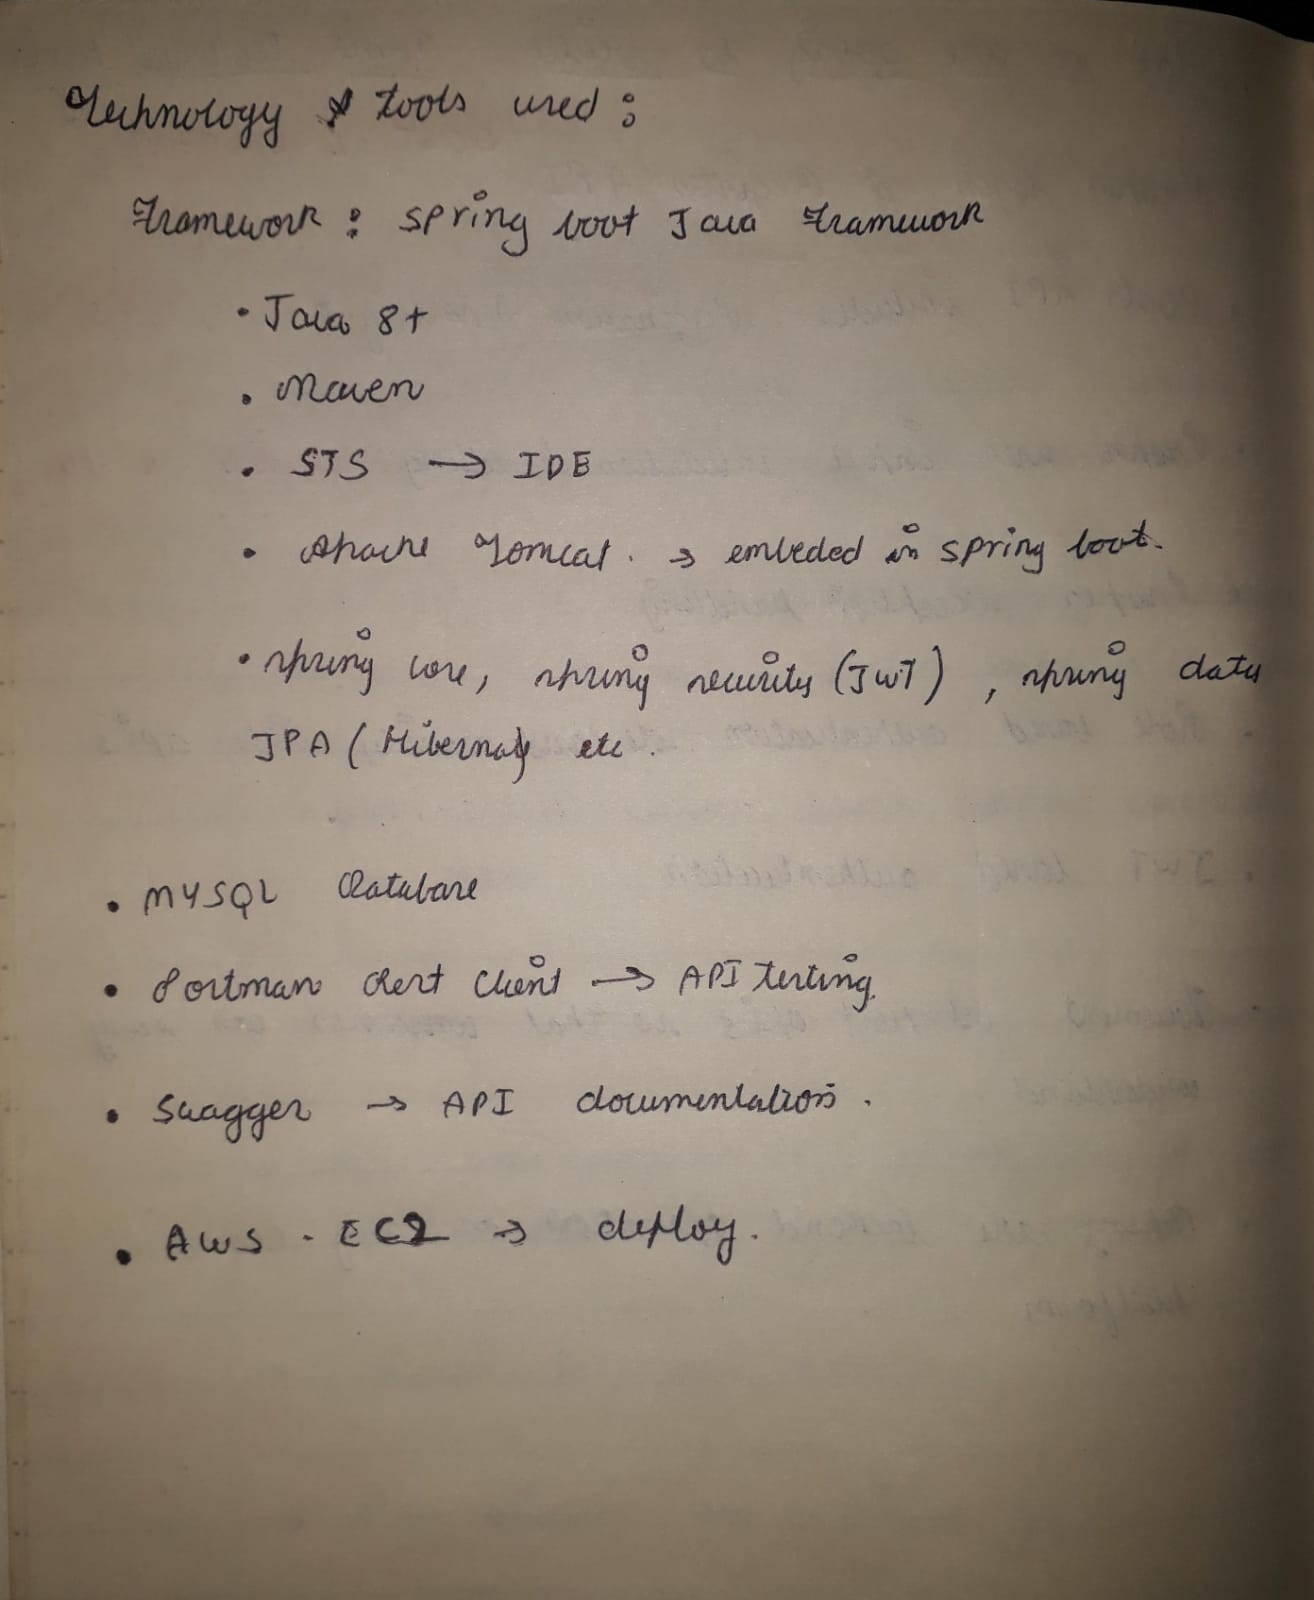 Technology & tools used :
Framework : Spring boot Java Framework
• Java 8+
• Maven
• STS → IDE
• Apache Tomcat. → embeded in spring boot.
• spring core, spring security (JWT) , spring data
JPA (Hibernate) etc.
• MYSQL Database
• Postman Rest Client → API testing.
• Swagger → API documentation.
• AWS - EC2 → deploy.